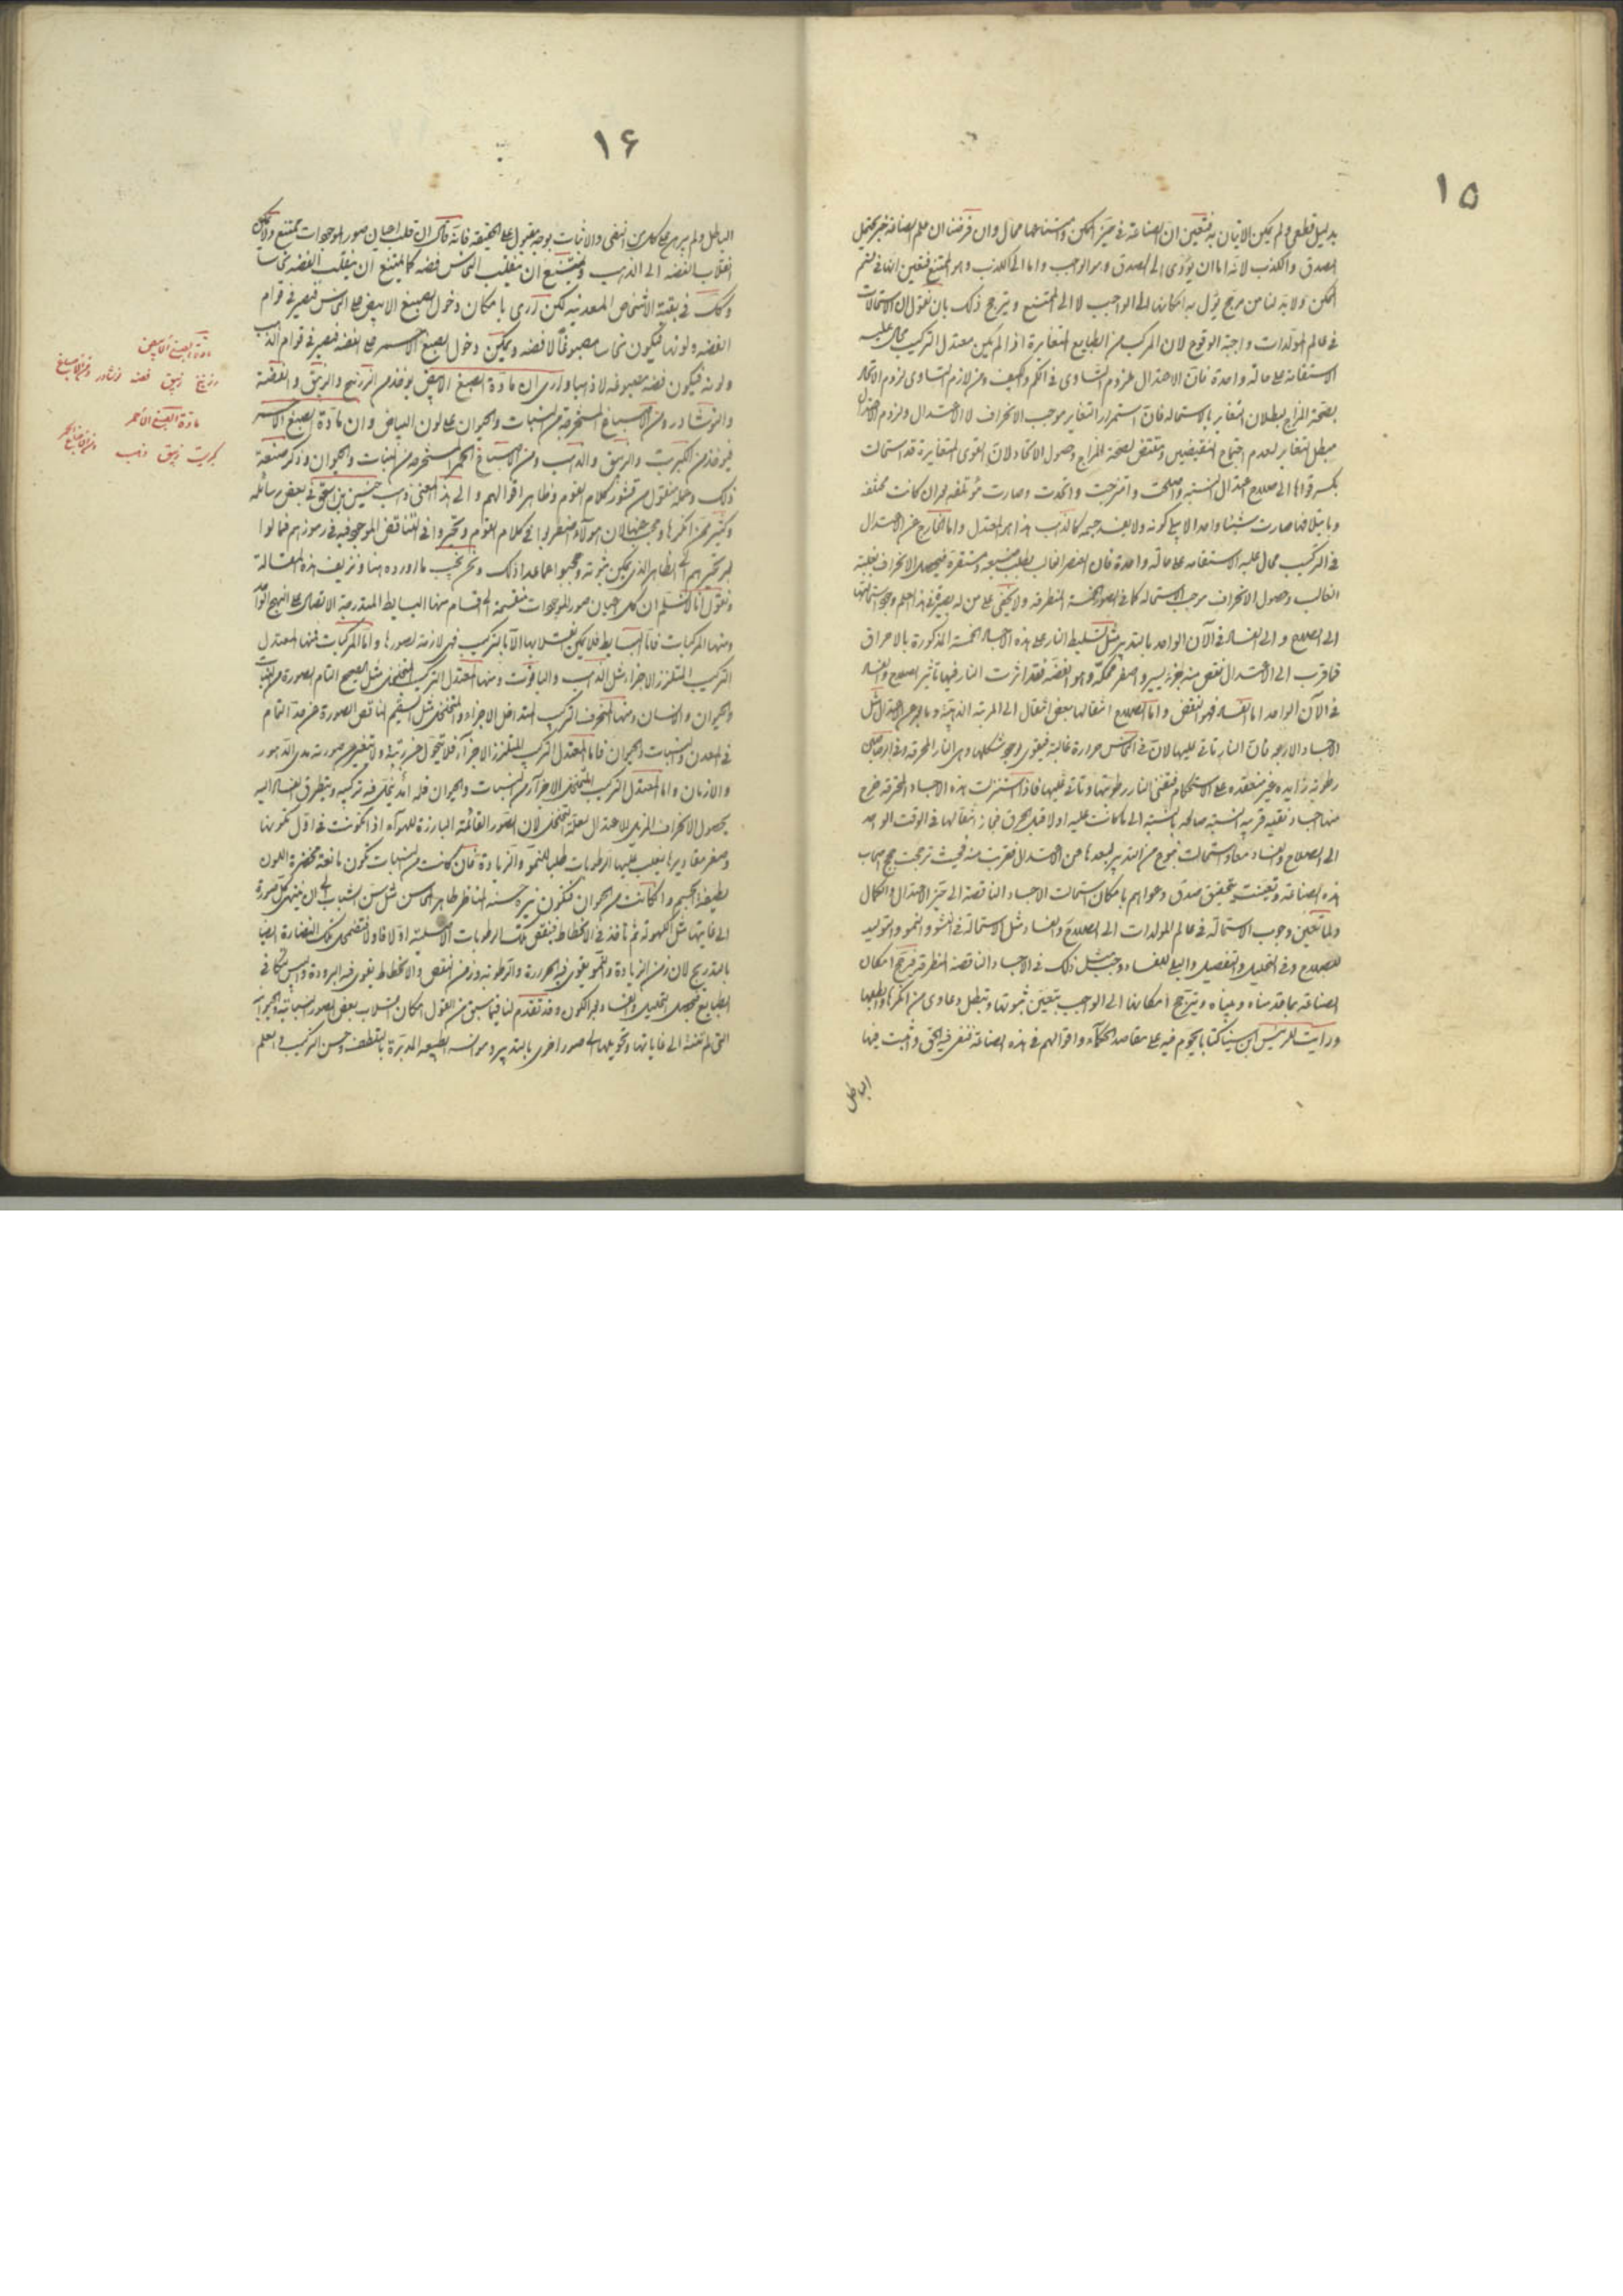 ١٥
بدليل قطعي ولم يمكن الاتيان به فتعين ان الصناعة في حيز الممكن وامتناعها محال وان فرضنا ان علم الصناعة خبر يحتمل
الصدق والكذب لانه اما ان يؤدى الى الصدق وهو الواجب واما الى الكذب وهو الممتنع فتعين انها في قسم
الممكن ولا بد لنا من مرجح يؤل به امكانها الى الواجب لا الى الممتنع ويترجح ذلك بان نقول ان الاستحالات
في عالم المولدات واجبة الوقوع لان المركب من الطبايع المتغايرة اذا لم يكن معتدل التركيب محال عليه
الاستقامة على حالة واحدة فان الاعتدال ملزوم التساوى في الكم والكيف ومن لازم التساوى لزوم الاتحاد
بصحة المزاج لبطلان التغاير بالاستحالة فان استمرار التغاير موجب الانحراف لا الاعتدال ولزوم الاعتدال
مبطل التغاير لعدم اجتماع النقيضين ومقتض لصحة المزاج وحصول الاتحاد لان القوى المتغايرة قد استحالت
بكسر قواها الى صلاح اعتدال النسبة واصطلحت وامتزجت واتحدت وصارت مؤتلفة بعد ان كانت مختلفة
وبايتلافها صارت شيئا واحدا لا يبلى كونه ولا يفسد جسمه كالذهب هذا هو المعتدل واما الخارج عن الاعتدال
في التركيب محال عليه الاستقامة على حالة واحدة فان العنصر الغالب يطلب مستقره فيحصل الانحراف بغلبة
الغالب وحصول الانحراف موجب الاستحالة كما في الصور الخمسة المتطرقة ولا يخفى على من له بصيرة في هذا العلم وجوب استحالتها
الى الصلاح والى الفساد في الآن الواحد بالتدبير مثل تسليط النار على هذه الاجساد الخمسة المذكورة بالاحراق
فما قرب الى الاعتدال نقص منه جزء يسير واصفر محكه وهو الفضة فقد اثرت النار فيها تأثير الصلاح والفساد
في الآن الواحد اما الفساد فهو النقض واما الصلاح انتقالها بعض انتقال الى المرتبة الذهبية وما بعد عن الاعتدال مثل
الاجساد الاربعة فان النار تاتى عليها لان في النحاس حرارة غالبة فيقوى بوجود شكلها وهى النار المحرقة وفي الرصاصين
رطوبة زايدة غير منعقدة على الاستحكام فتفنى النار رطوبتها وتاتى عليها فاذا استنزلت هذه الاجساد المحترقة خرج
منها اجساد نقية قريبة النسبة صالحة بالنسبة الى ما كانت عليه اولا قبل الحرق فجاز انتقالها في الوقت الواحد
الى الصلاح والفساد معا واستحالت بنوع من التدبير لبعدها عن الاعتدال فقربت منه فحيث ترجحت حجج اصحاب
هذه الصناعة وتعينت بتحقيق صدق دعواهم بامكان استحالت الاجساد الناقصة الى حيز الاعتدال والكمال
ولما تعين وجوب الاستحالة في عالم المولدات الى الصلاح والفساد مثل الاستحالة في النشو والنمو والتوليد
للصلاح وفي التحليل والتفصيل والبلى للفساد وجب مثل ذلك في الاجساد الناقصة المتطرقة فترجح امكان
الصناعة بما قدمناه وبيناه ويترجح امكانها الى الواجب بتعين ثبوتها وتبطل دعاوى من انكرها وابطلها
ورأيت للرئيس ابن سينا كتابا يحوم فيه على مقاصد الحكماء واقوالهم في هذه الصناعة فنفى فيه الحق واثبت فيها
الباطل
١٦
الباطل ولم يبرهن على كلا من النفي والاثبات بوجه مقبول على الحقيقة فانه قال ان قلب اعيان صور الموجودات ممتنع ولا يمكن
انقلاب الفضة الى الذهب ويمتنع ان ينقلب النحاس فضة كما يمتنع ان ينقلب الفضة نحاسا
وكذلك في بقية الاشخاص المعدنية لكن ارى بامكان دخول الصبغ الابيض على النحاس فيصير في قوام
الفضة ولونها فيكون نحاسا مصبوغا لا فضة ويمكن دخول الصبغ الاحمر على الفضة فيصير في قوام الذهب
ولونه فيكون فضة مصبوغة لا ذهبا وارى ان مادة الصبغ الابيض يوخذ من الزرنيخ والزيبق والفضة
والنوشادر ومن الاصباغ المستخرجة من النبات والحيوان على لون البياض وان مادة الصبغ الاحمر
فيوخذ من الكبريت والزيبق والذهب ومن الاصباغ الحمر المستخرجة من النبات والحيوان وذكر صنعة
ذلك وجمله منقول من قشور كلام القوم وظاهر اقوالهم والى هذا المعنى ذهب حنين بن اسحق في بعض رسائله
وكثير ممن انكرها وحجب عنها لان هؤلاء اضطربوا في كلام القوم وتحيروا في التناقض الموجود فيه في رموزهم فمالوا
الظاهر الذي يمكن ثبوته وحجبوا عما عدا ذلك ونحن نجيب ما اورده هنا ونزيف هذه المقالة
ونقول انا لا نسلم ان كل اعيان صور الموجودات منقسمة الى اقسام منها البسايط المندرجة الاتصال على النهج الواحد
ومنها المركبات فاما البسايط فلا يمكن انقلابها الا بالتركيب فهي لازمة لصورها واما المركبات فمنها المعتدل
التركيب المتلزز الاجزاء مثل الذهب والياقوت ومنها المعتدل التركيب المتخلخل مثل الصحيح التام الصورة من النبات
والحيوان والانسان ومنها المنحرف التركيب المتداخل الاجزاء والمتخلخل مثل السقيم الناقص الصورة عن حد التمام
في المعدن والنبات والحيوان فاما المعتدل التركيب المتلزز الاجزاء فلا يتحول عن رتبته ولا يتغير عن صورته مدى الدهور
والازمان واما المعتدل التركيب المتخلخل الاجزاء من النبات والحيوان فله امد ينحل فيه تركيبه ويتطرق الفساد اليه
بحصول الانحراف المزيل للاعتدال لعلة التخلخل لان الصور القائمة البارزة للهواء اذا تكونت في اول تكونها
وصغر مقاديرها يغلب عليها الرطوبات طلبا للنمو والزيادة فان كانت من النبات تكون يانعة مخضرة اللون
لطيفة الجسم وان كانت من الحيوان فتكون نيرة حسنة المناظر ظاهر المحاسن مثل سن الشباب الى ان ينتهى كل صورة
الى غايتها مثل الكهولة ثم تاخذ في الانحطاط فينقص تلك الرطوبات الاصلية اولا فاولا فتضمحل تلك النضارة ايضا
بالتدريج لان زمن الزيادة والنمو يقوى فيه الحرارة والرطوبة وزمن النقص والانحطاط يقوى فيه البرودة واليبس
الطبايع فيحصل التحليل والفساد بعد الكون وقد تقدم لنا فيما سبق من القول امكان انقلاب بعض الصور النباتية والحيوانية
التى لم تنته الى غاياتها وتحويلها الى صور اخرى بالتدبير وموانسة الطبيعة المدبرة بالتلطف وحسن التركيب والعلم
مادة الصبغ الابيض
زرنيخ زيبق فضه نوشادر ومن الاصباغ
مادة الصبغ الاحمر
كبريت زيبق ذهب